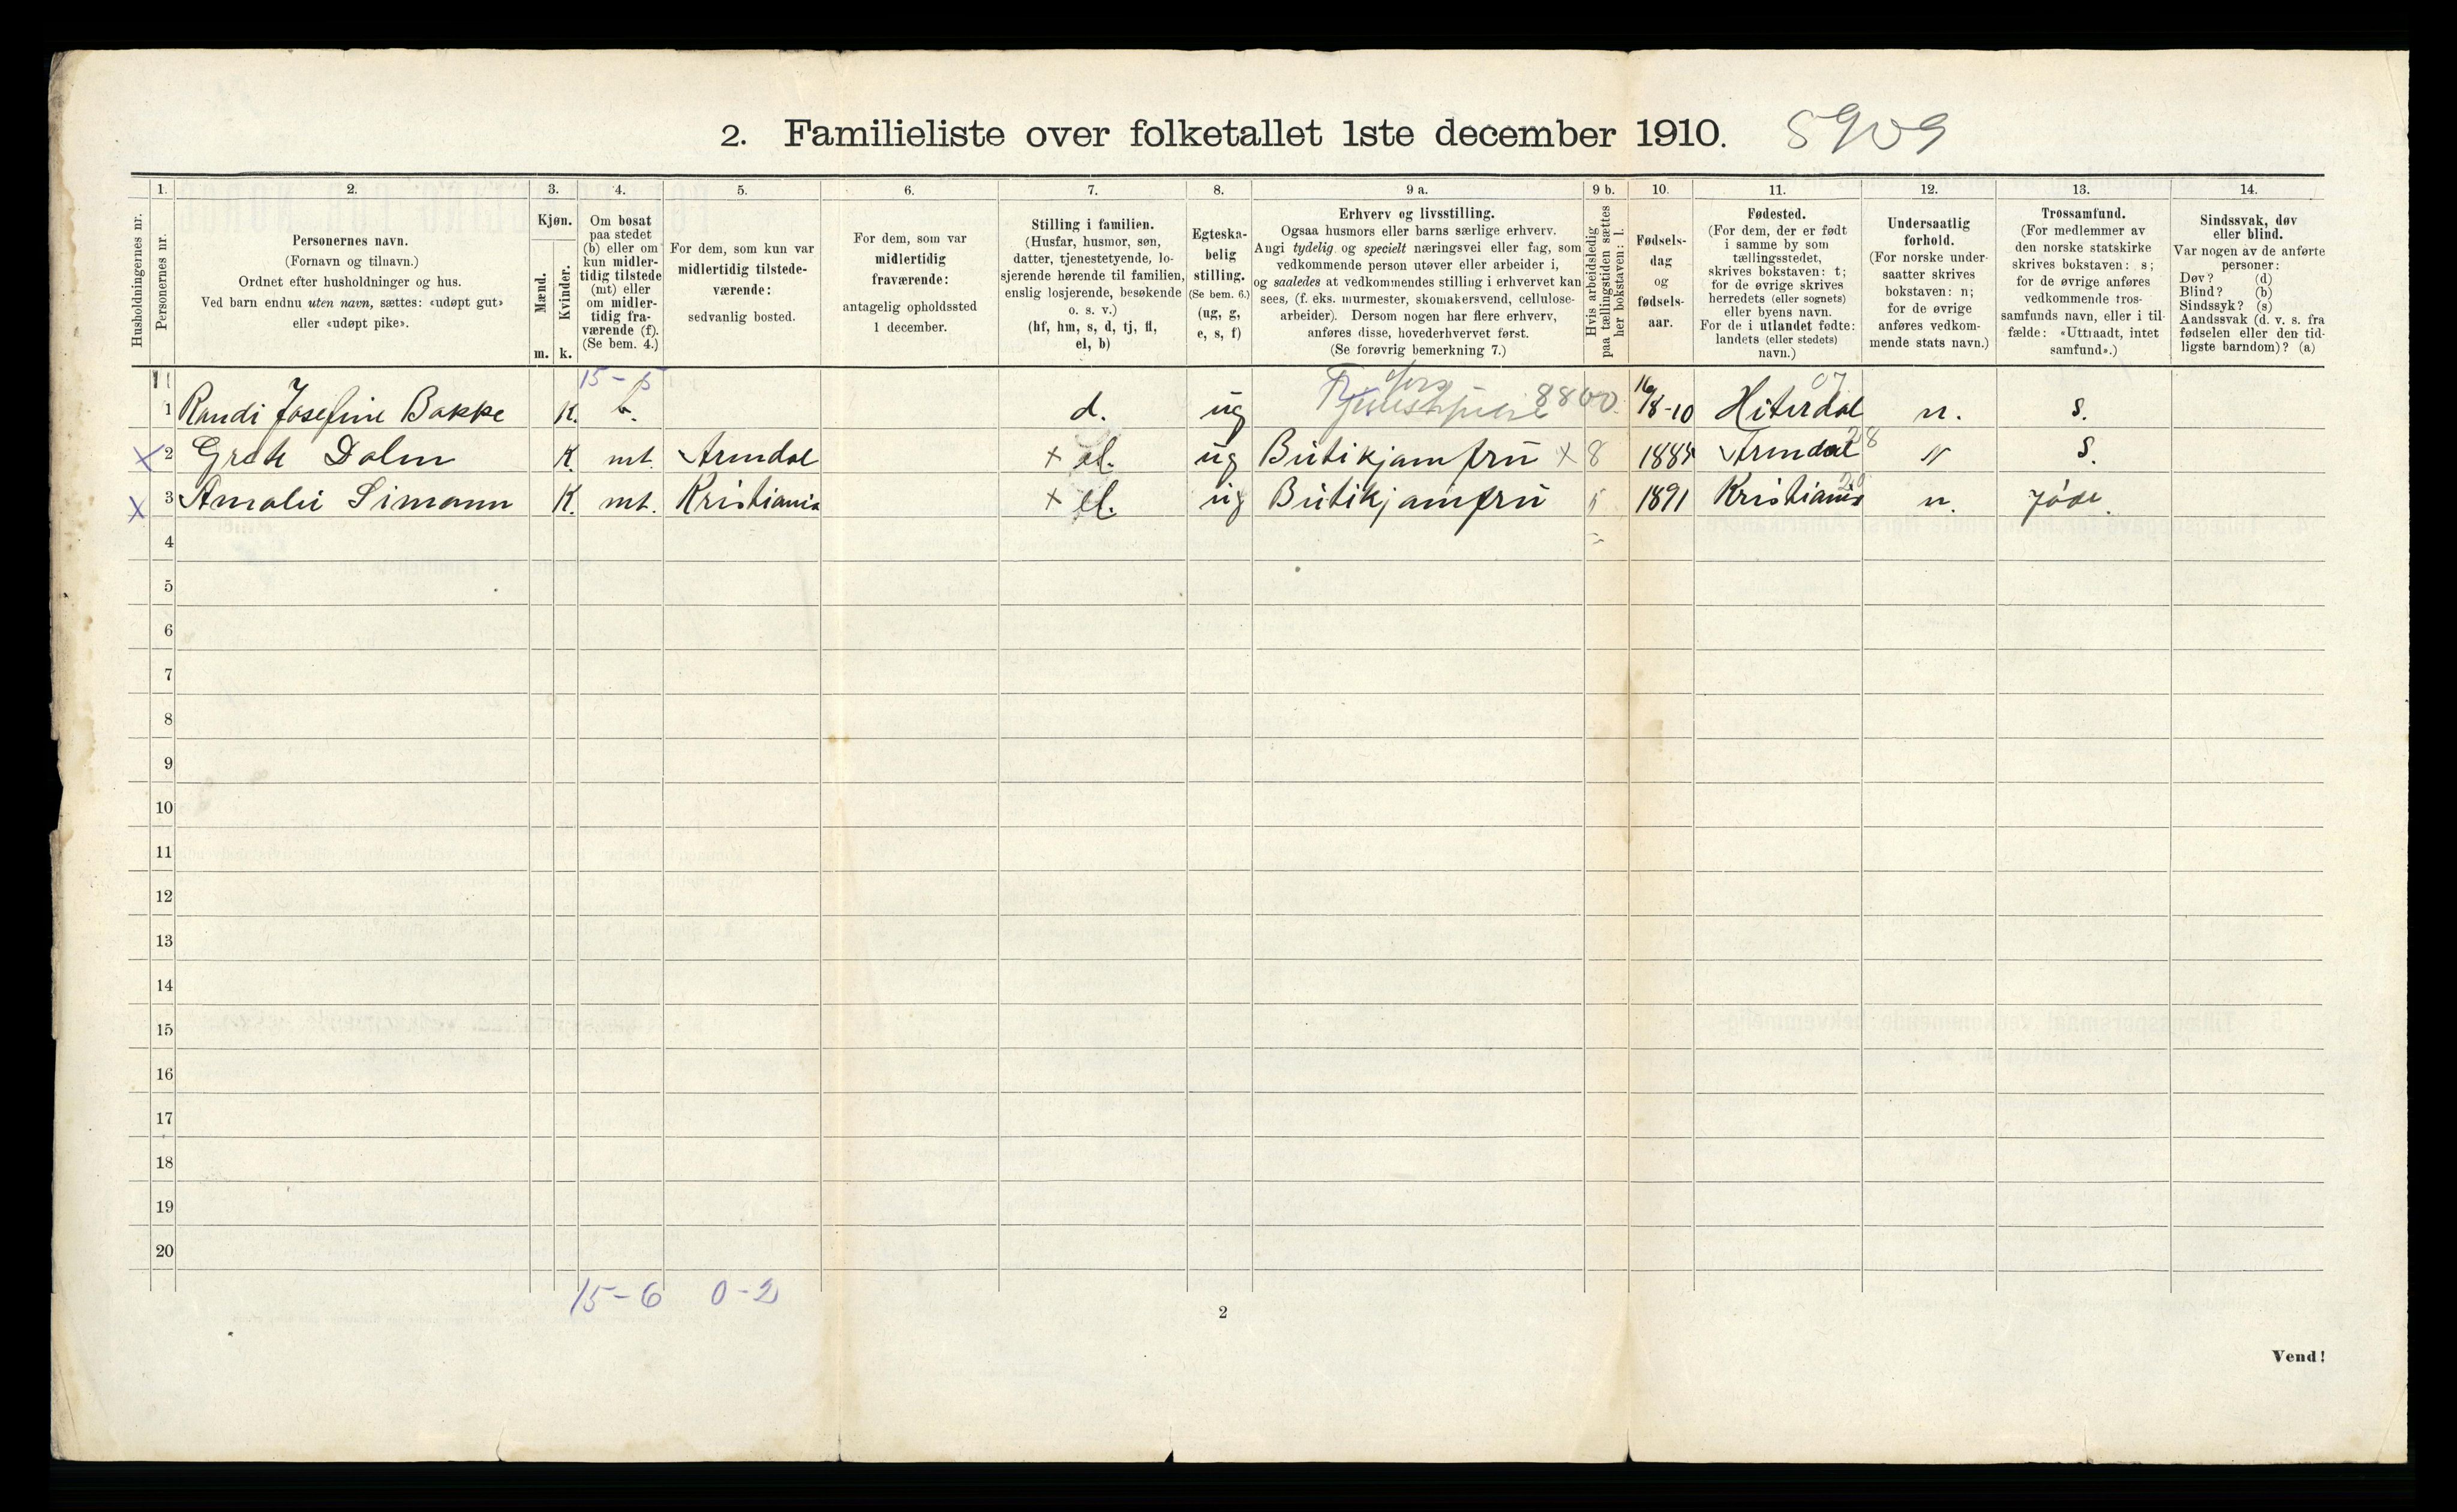 2. Familieliste over folketallet 1ste december 1910. 5909
Husholdningernes nr.
1.
Personernes nr.
2.
Personernes navn.
(Fornavn og tilnavn.)
Ordnet efter husholdninger og hus.
Ved barn endnu uten navn, sættes: «udøpt gut»
eller «udøpt pike».
3.
Kjøn.
Mænd.
Kvinder.
m. k.
4.
Om bosat
paa stedet
(b) eller om
kun midler-
tidig tilstede
(mt) eller
om midler-
tidig fra-
værende (f).
(Se bem. 4.)
5.
For dem, som kun var
midlertidig tilstede-
værende:
sedvanlig bosted.
6.
For dem, som var
midlertidig
fraværende:
antagelig opholdssted
1 december.
7.
Stilling i familien.
(Husfar, husmor, søn,
datter, tjenestetyende, lo-
sjerende hørende til familien,
enslig losjerende, besøkende
o. s. v.)
(hf, hm, s, d, tj, fl,
el, b)
8.
Egteska-
belig
stilling.
(Se bem. 6.)
(ug, g,
e, s, f)
9 a.
Erhverv og livsstilling.
Ogsaa husmors eller barns særlige erhverv.
Angi tydelig og specielt næringsvei eller fag, som
vedkommende person utøver eller arbeider i,
og saaledes at vedkommendes stilling i erhvervet kan
sees, (f. eks. murmester, skomakersvend, cellulose-
arbeider). Dersom nogen har flere erhverv,
anføres disse, hovederhvervet først.
(Se forøvrig bemerkning 7.)
9 b.
Hvis arbeidsledig
paa tællingstiden sættes
her bokstaven: l.
10.
Fødsels-
dag
og
fødsels-
aar.
11.
Fødested.
(For dem, der er født
i samme by som
tællingsstedet,
skrives bokstaven: t;
for de øvrige skrives
herredets (eller sognets)
eller byens navn.
For de i utlandet fødte:
landets (eller stedets)
navn.)
12.
Undersaatlig
forhold.
(For norske under-
saatter skrives
bokstaven: n;
for de øvrige
anføres vedkom-
mende stats navn.)
13.
Trossamfund.
(For medlemmer av
den norske statskirke
skrives bokstaven: s;
for de øvrige anføres
vedkommende tros-
samfunds navn, eller i til-
fælde: «Uttraadt, intet
samfund».)
14.
Sindssvak, døv
eller blind.
Var nogen av de anførte
personer:
Døv? (d)
Blind? (b)
Sindssyk? (s)
Aandssvak (d. v. s. fra
fødselen eller den tid-
ligste barndom)? (a)
15-5
1 Randi Josefine Bakke K. b. d. ug 8800 16/8-10 Hiterdal 07 n. s.
X 2 Grete Dalen K. mt. Arendal + el. ug Butikjomfru X 8 1885 Arendal 28 " S.
X 3 Amalie Simonn K. mt. Kristiania + el. ug Butikjomfru 5 1891 Kristiania 29 n. jøde.
4
5
6
7
8
9
10
11
12
13
14
15
16
17
18
19
20
15-6 0-2
2
Vend!